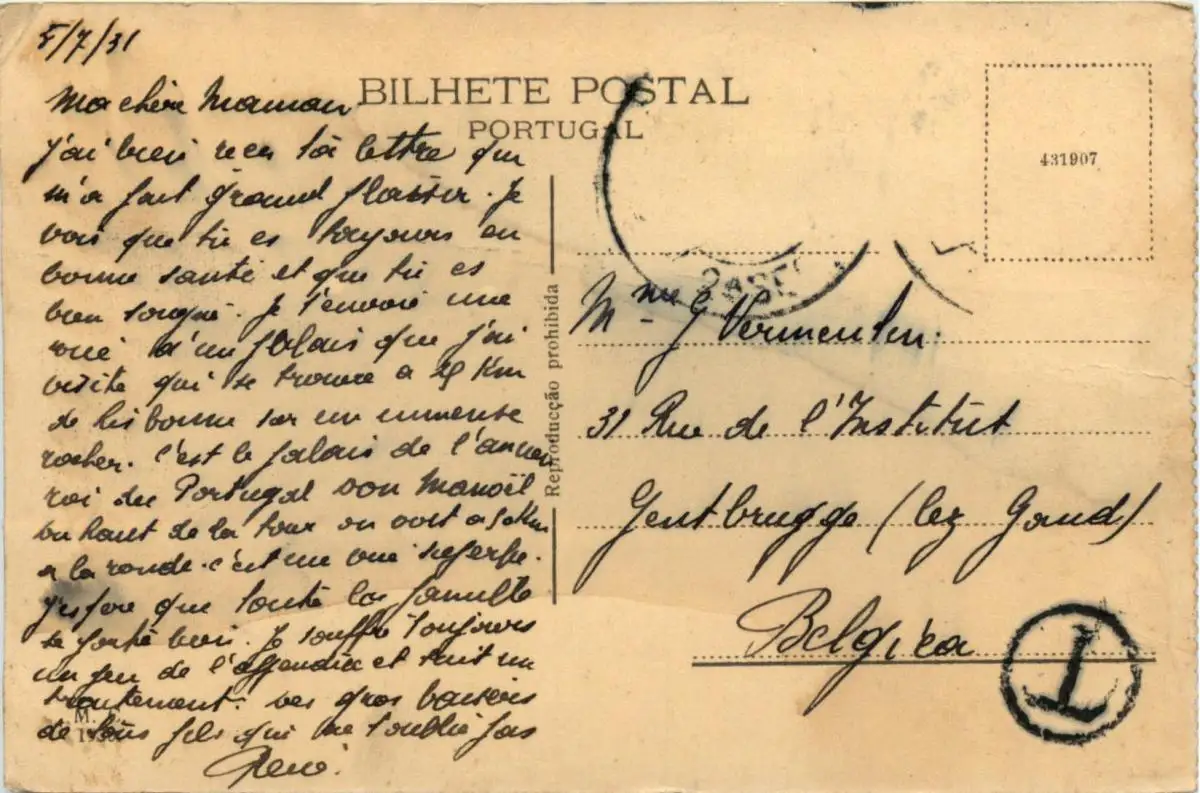 5/7/31
Ma chère Maman
J'ai bien reçu ta lettre qui
m'a fait grand plaisir. Je
vois que tu es toujours en
bonne santé et que tu es
bien soigné. Je t'envoie une
vue d'un palais que j'ai
visité qui se trouve a Km
de Lisbonne sur un immense
rocher. C'est le palais de l'ancien
roi du Portugal Don Manoël
en haut de la tour on voit a 50 Km
a la ronde. c'est une vue superbe.
J'espere que toute la famille
se porte bien. Je souffre toujours
un peu de l'appendice et suit un
traitement. Des gros baisers
de ton fils qui ne t'oublie pas
René.
BILHETE POSTAL
PORTUGAL
Reproducção prohibida
431907
Mme G Vermeulen.
31 Rue de l'Institut
Gentbrugge (lez Gand)
Belgica
T